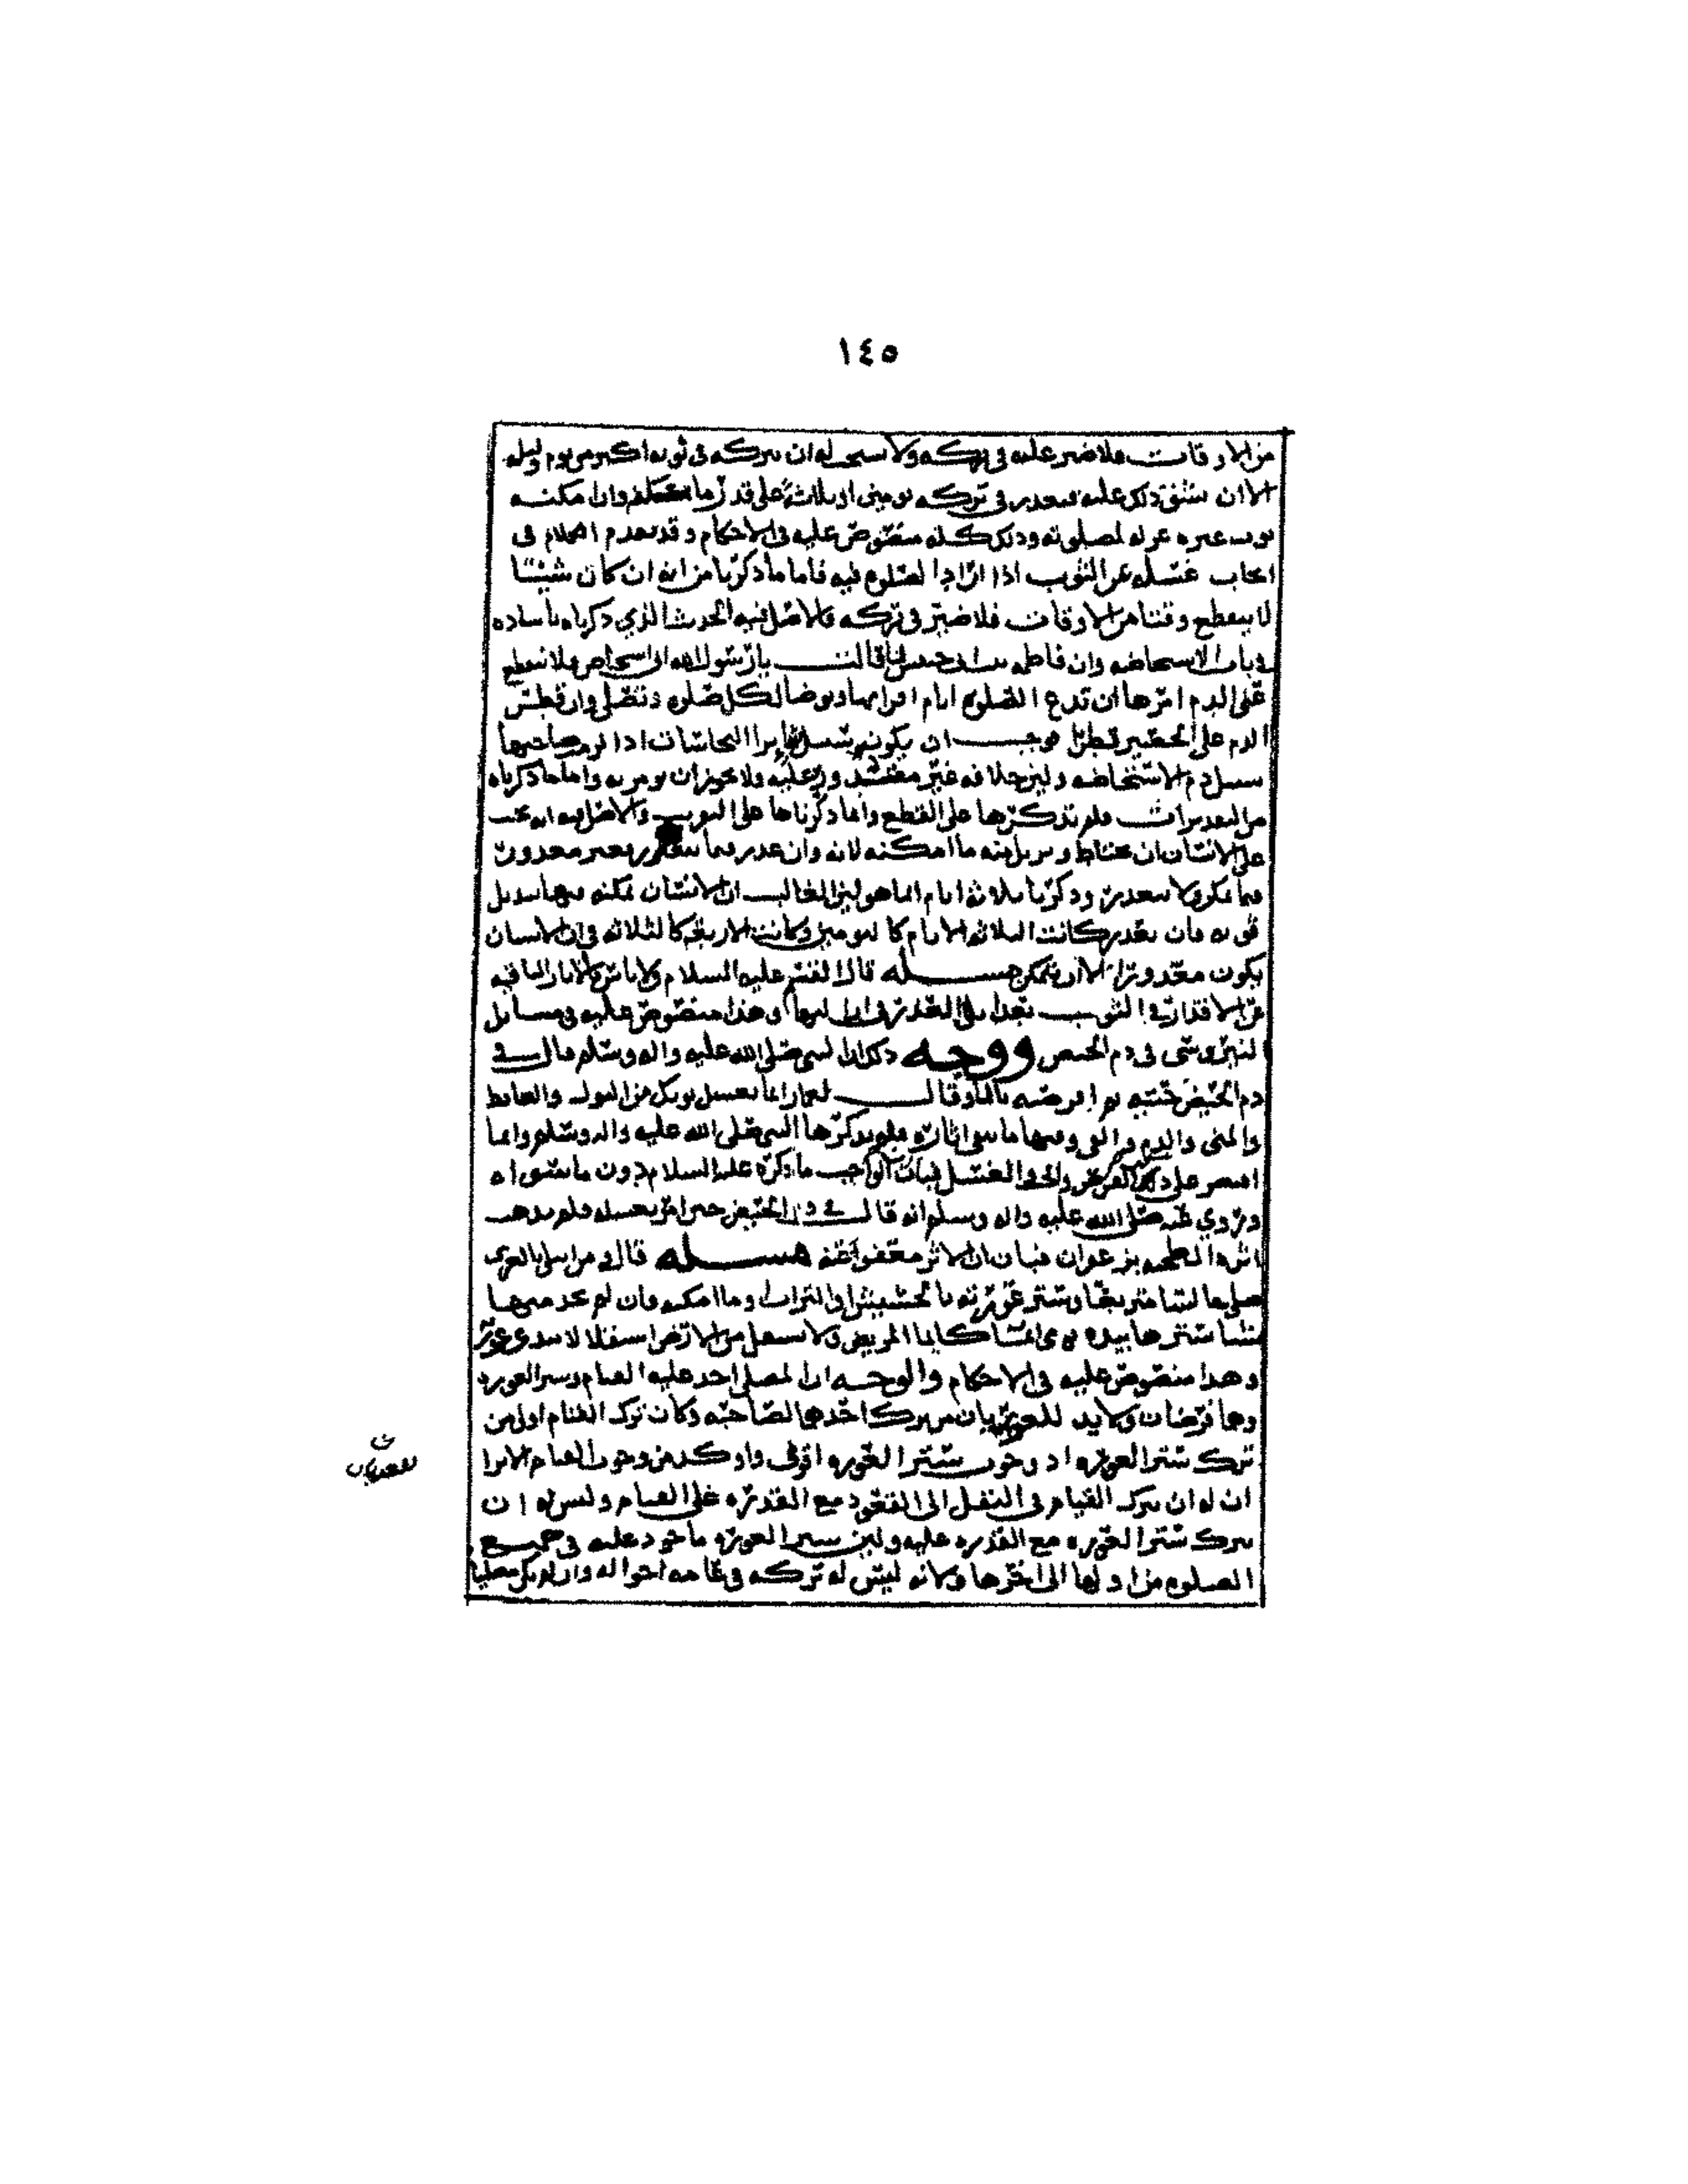 ١٤٥
من الاوقات فلا ضير عليه في تركه ولا نستحب له ان يتركه في ثوبه اكثر من يوم وليله
الا ان يشق ذلك عليه فيعذر في تركه يومين او ثلاثة على قدر ما وان امكنه
ثوب غيره عزله لصلوته وذلك كله منصوص عليه في الاحكام وقد تقدم الكلام في
ايجاب غسله عن الثوب اذا اراد الصلوه فيه فاما ما ذكرنا من انه ان كان شيئا
لا ينقطع وقتا من الاوقات فلا ضير في تركه فالاصل فيه الحديث الذي ذكرناه باسناده
في باب الاستحاضه وان فاطمه بنت ابي حبيش لما قالت يا رسول الله اني استحاض فلا ينقطع
عني الدم امرها ان تدع الصلوه ايام اقرائها وتتوضا لكل صلوه وتصلي وان قطر
الدم على الحصير قطرا فوجب ان يكون سائر النجاسات اذا لزم صاحبها
سبيل دم الاستحاضه وليس خلافه غير وعليه ولا يجوز ان يومر به واما ما ذكرناه
من التقديرات فلم نذكرها على القطع وانما ذكرناها على التقريب والاصل فيه انه يجب
على الانسان ان يحتاط ويزيل منه ما امكنه لانه وان عذر فيما يتعذر فغير معذور
فيما يمكن ولا يتعذر وذكرنا ثلاثة ايام انما هو لان الغالب ان الانسان يمكنه فيها تبديل
ثوبه فان تعذر كانت الثلاثه الايام كاليومين وكانت الاربعه كالثلاثه في ان الانسان
يكون معذورا الا ان يتمكن مسـله قال القسم عليه السلام ولا باس بالاثار الباقيه
من الاقذار في الثوب بعد ابلاغ العذر في ازالتها وهذا منصوص عليه في مسائل
النيروسي في دم الحيض ووجـه ذلك ان النبي صلى الله عليه واله وسلم قال في
دم الحيض حتيه ثم اقرصيه بالماء وقال لعمار انما تغسل ثوبك من البول والغائط
والمني والدم والقي وفيها ما يبقى اثاره فلم يذكرها النبي صلى الله عليه واله وسلم وانما
اقتصر على ذكر القرص والحت والغسل فبان ان الواجب ما ذكره عليه السلام دون ما سواه
وروي عنه صلى الله عليه واله وسلم انه قال في دم الحيض حين امر بغسله فلم يذهب
اثره الطخيه بزعفران فبان ان الاثر معفو عنه مسـله قال ومن ابتلي بالعري
صلى جالسا متربعا وستر عورته بالحشيش او التراب وما امكنه فان لم يجد منهما
شيئا سترها بيده يومي ايماء كايماء المريض ولا يستقل من الارض استقلالا تبدو عورته
وهذا منصوص عليه في الاحكام والوجـه ان المصلي اخذ عليه القيام وستر العوره
وهما فرضان ولا بد للعريان من ترك احدهما لصاحبه وكان ترك القيام اولى من
ترك ستر العوره اذ وجوب ستر العوره اقوى واوكد من وجوب القيام الا ترا
ان له ان يترك القيام في النفل الى القعود مع القدره على القيام وليس له ان
يترك ستر العوره مع القدره عليه ولان ستر العوره ماخوذ عليه في جميع
الصلوه من اولها الى اخرها ولانه ليس له تركه في عامه احواله وان لم يكن مصليا